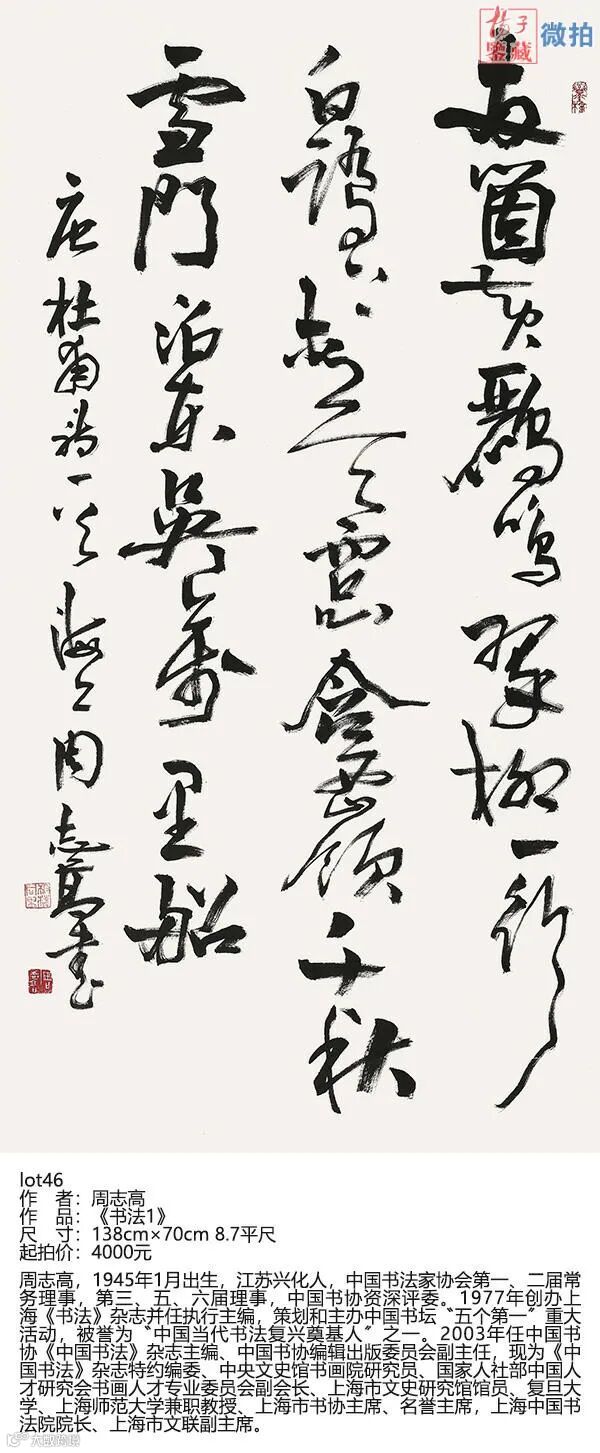 楊子
鉴藏
微拍
两箇黄鸝鳴翠柳一行
白鷺上青天窓含西嶺千秋
雪門泊東吴萬里船
唐杜甫詩一首海上周志高書
lot46
作 者：周志高
作 品：《书法1》
尺 寸：138cm×70cm 8.7平尺
起拍价：4000元
周志高，1945年1月出生，江苏兴化人，中国书法家协会第一、二届常
务理事，第三、五、六届理事，中国书协资深评委。1977年创办上
海《书法》杂志并任执行主编，策划和主办中国书坛〝五个第一〞重大
活动，被誉为〝中国当代书法复兴奠基人〞之一。2003年任中国书
协《中国书法》杂志主编、中国书协编辑出版委员会副主任，现为《中
国书法》杂志特约编委、中央文史馆书画院研究员、国家人社部中国人
才研究会书画人才专业委员会副会长、上海市文史研究馆馆员、复旦大
学、上海师范大学兼职教授、上海市书协主席、名誉主席，上海中国书
法院院长、上海市文联副主席。